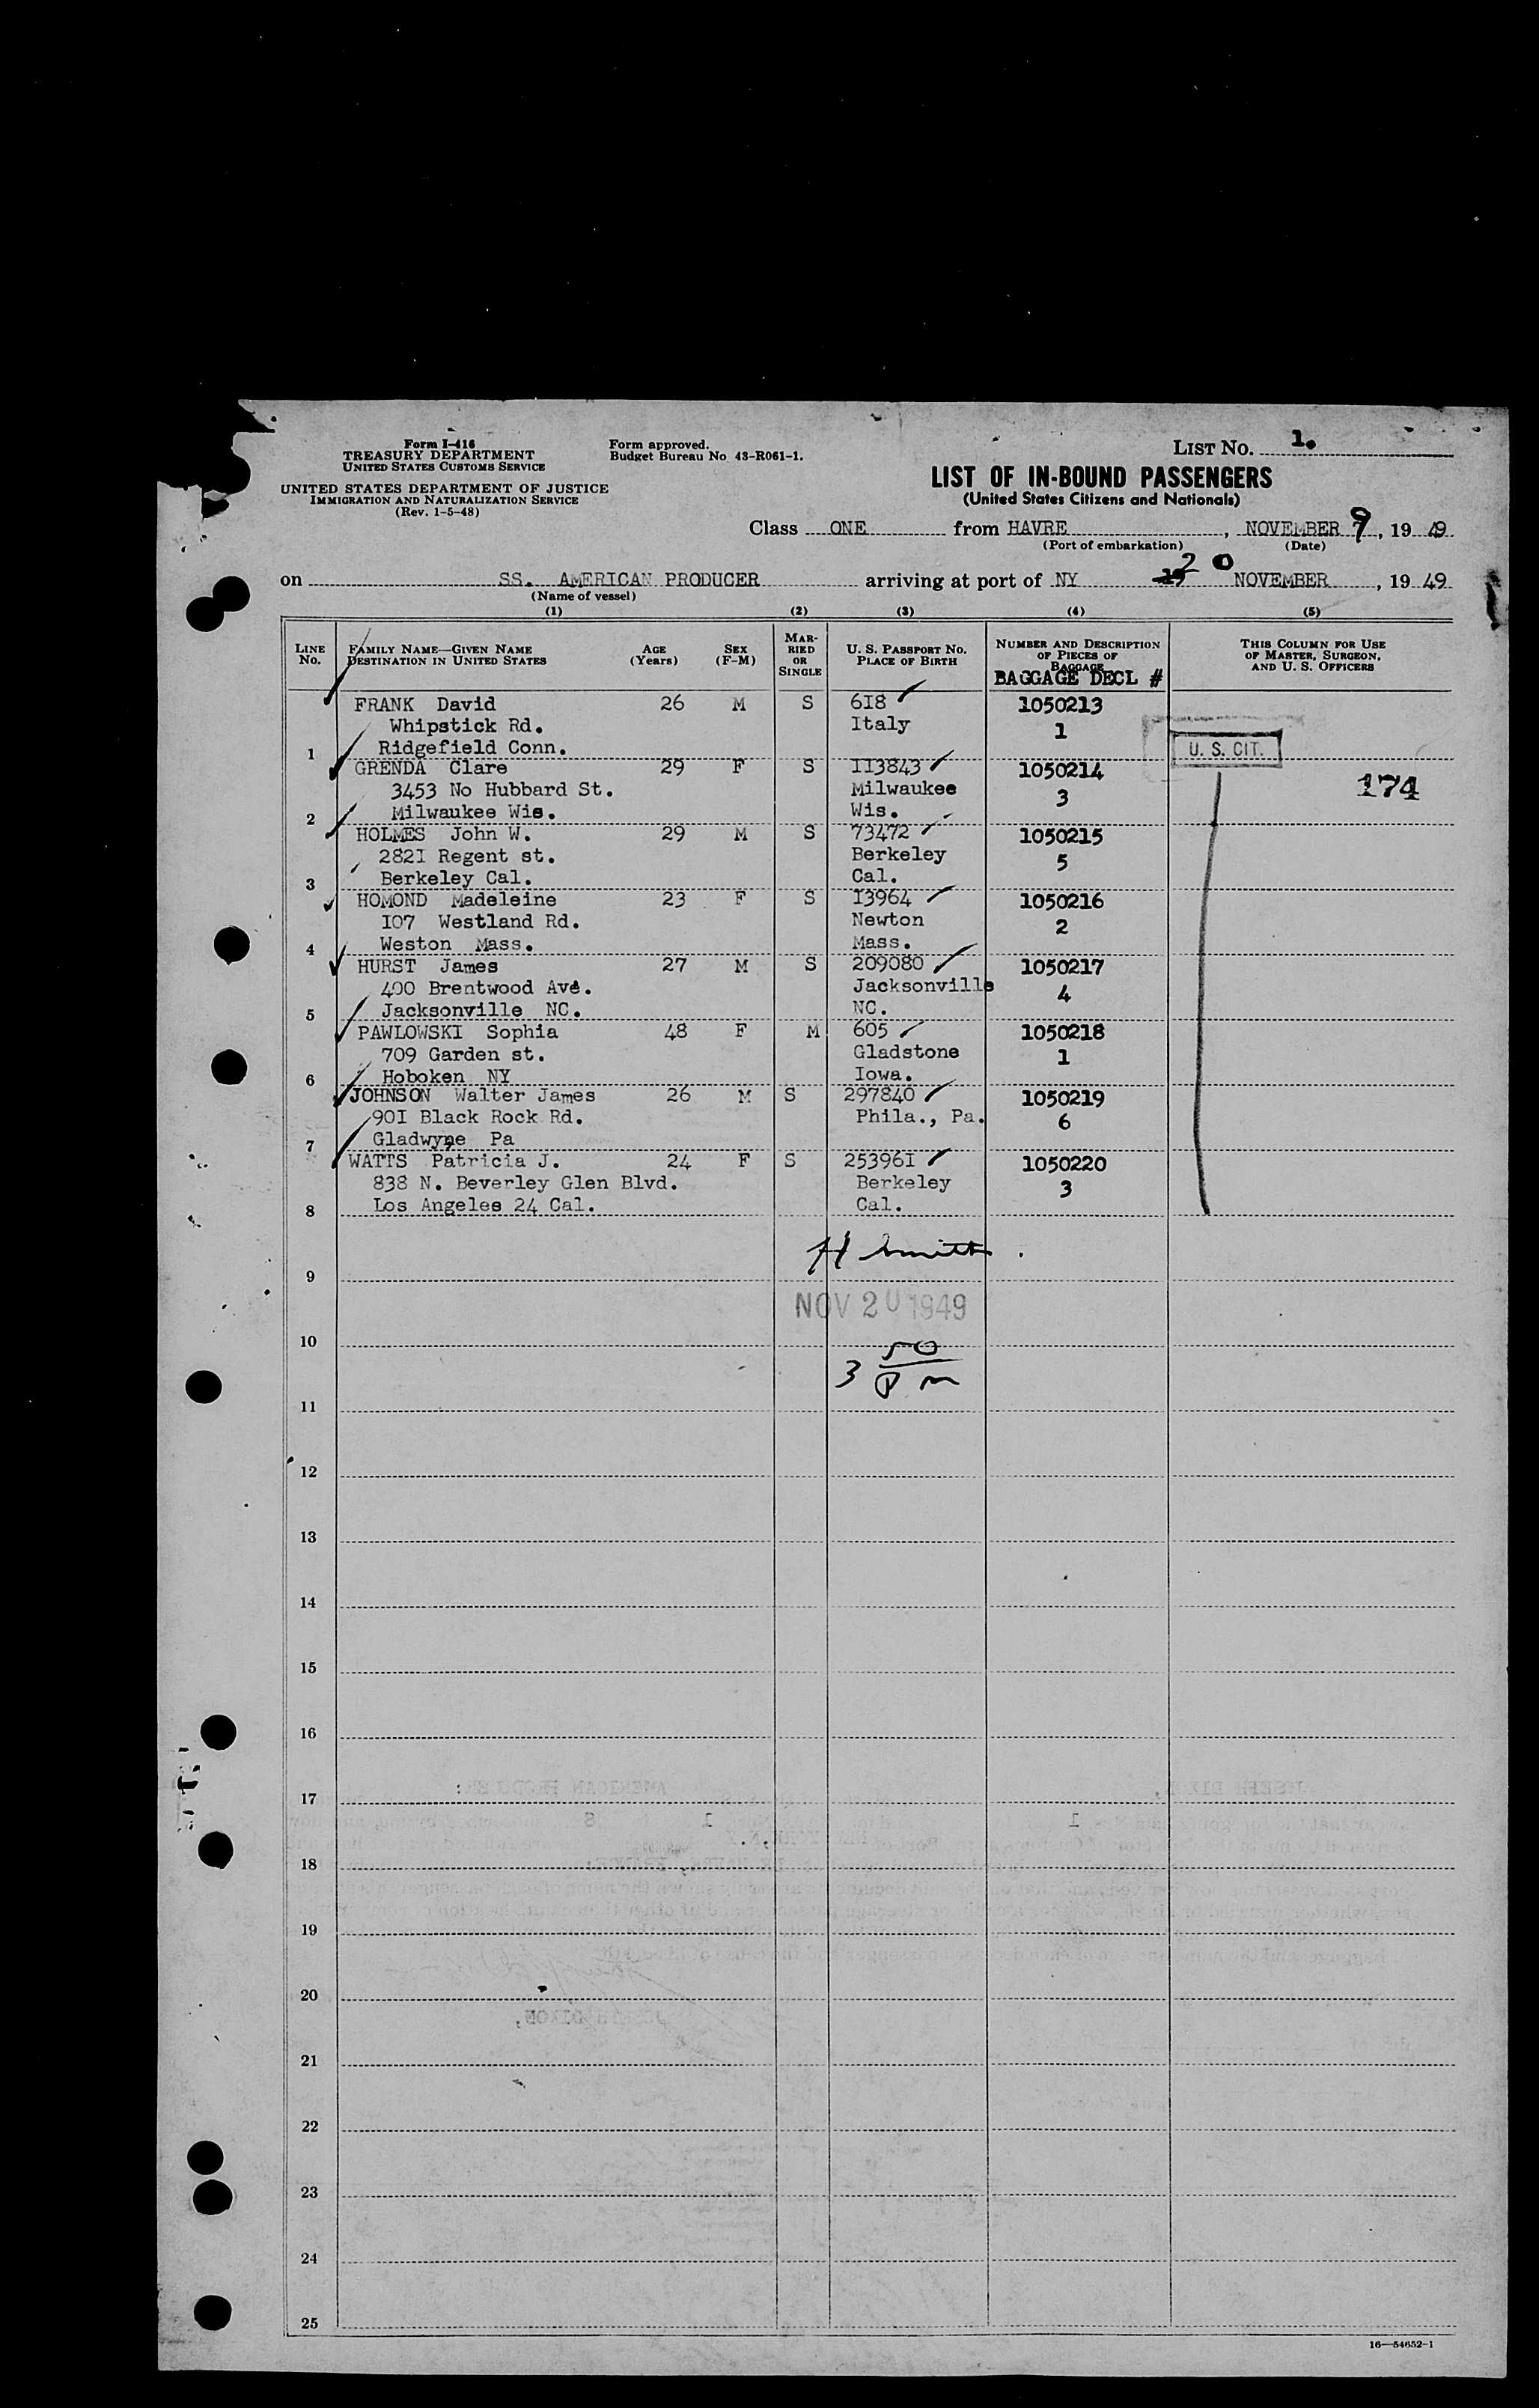 Form I-416
TREASURY DEPARTMENT
UNITED STATES CUSTOMS SERVICE
UNITED STATES DEPARTMENT OF JUSTICE
IMMIGRATION AND NATURALIZATION SERVICE
(Rev. 1-5-48)
Form approved.
Budget Bureau No 43-R061-1.
LIST No. 1.
LIST OF IN-BOUND PASSENGERS
(United States Citizens and Nationals)
Class ONE from HAVRE, NOVEMBER 9, 19 49
(Port of embarkation) (Date)
on SS. AMERICAN PRODUCER arriving at port of NY 20 NOVEMBER, 19 49
(Name of vessel)
(1) (2) (3) (4) (5)
LINE No. FAMILY NAME—GIVEN NAME DESTINATION IN UNITED STATES AGE (Years) SEX (F-M) MARRIED OR SINGLE U. S. PASSPORT NO. PLACE OF BIRTH NUMBER AND DESCRIPTION OF PIECES OF BAGGAGE THIS COLUMN FOR USE OF MASTER, SURGEON, AND U. S. OFFICERS
BAGGAGE DECL #
FRANK David 26 M S 6I8 1050213
Whipstick Rd. Italy 1
1 Ridgefield Conn. U. S. CIT.
GRENDA Clare 29 F S II3843 1050214 174
3453 No Hubbard St. Milwaukee 3
2 Milwaukee Wis. Wis.
HOLMES John W. 29 M S 73472 1050215
282I Regent st. Berkeley 5
3 Berkeley Cal. Cal.
HOMOND Madeleine 23 F S I3964 1050216
I07 Westland Rd. Newton 2
4 Weston Mass. Mass.
HURST James 27 M S 209080 1050217
400 Brentwood Ave. Jacksonville 4
5 Jacksonville NC. NC.
PAWLOWSKI Sophia 48 F M 605 1050218
709 Garden st. Gladstone 1
6 Hoboken NY Iowa.
JOHNSON Walter James 26 M S 297840 1050219
90I Black Rock Rd. Phila., Pa. 6
7 Gladwyne Pa
WATTS Patricia J. 24 F S 25396I 1050220
838 N. Beverley Glen Blvd. Berkeley 3
8 Los Angeles 24 Cal. Cal.
H Smith
9
NOV 20 1949
10
3 50 PM
11
12
13
14
15
16
17
18
19
20
21
22
23
24
25
16—54652-1